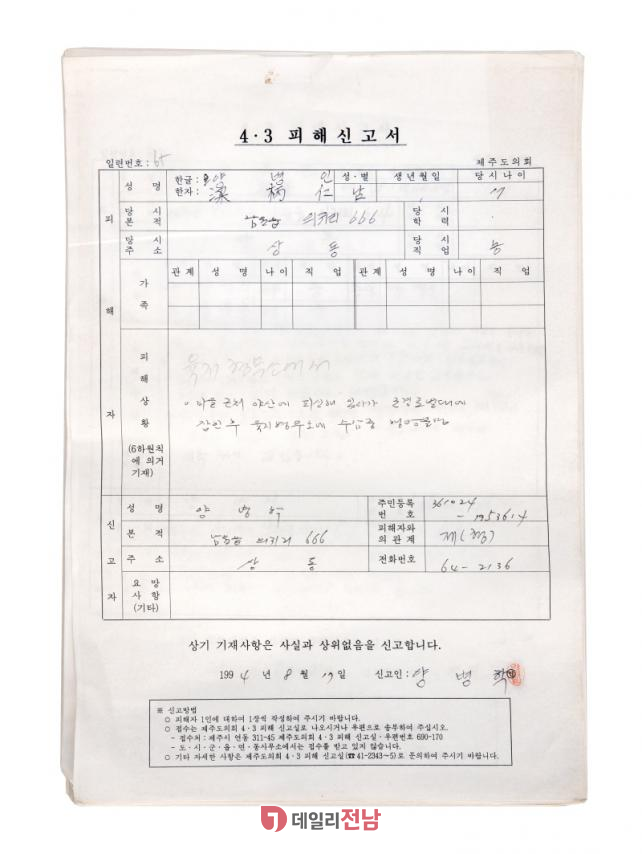 4·3 피해신고서
일련번호: 65
제주도의회
피해자
성 명
한글: 양 병 인
한자: 梁 仁
성·별
남
생년월일
당시나이
당시본적
남원읍 의귀리 666
당시학력
당시주소
상 동
당시직업
농
가족
관계 성 명 나이 직 업 관계 성 명 나이 직 업
피해상황
(6하원칙에 의거 기재)
육지 형무소에서
마을 근처 야산에 피신해 있다가 군경토벌대에
잡힌후 육지형무소에 수감중 행방불명
신고자
성 명
양 병 학
주민등록번호
본적
남원읍 의귀리 666
피해자와의 관계
제(형)
주소
상 동
전화번호
64-2136
요망사항
(기타)
상기 기재사항은 사실과 상위없음을 신고합니다.
1994년 8월 17일 신고인: 양 병 학
※ 신고방법
○ 피해자 1인에 대하여 1장씩 작성하여 주시기 바랍니다.
○ 접수는 제주도의회 4·3 피해 신고실로 나오시거나 우편으로 송부하여 주십시오.
- 접수처: 제주시 연동 311-45 제주도의회 4·3 피해 신고실·우편번호 690-170
- 도·시·군·읍·면·동사무소에서는 접수를 받고 있지 않습니다.
○ 기타 자세한 사항은 제주도의회 4·3 피해 신고실(☎41-2343~5)로 문의하여 주시기 바랍니다.
데일리전남